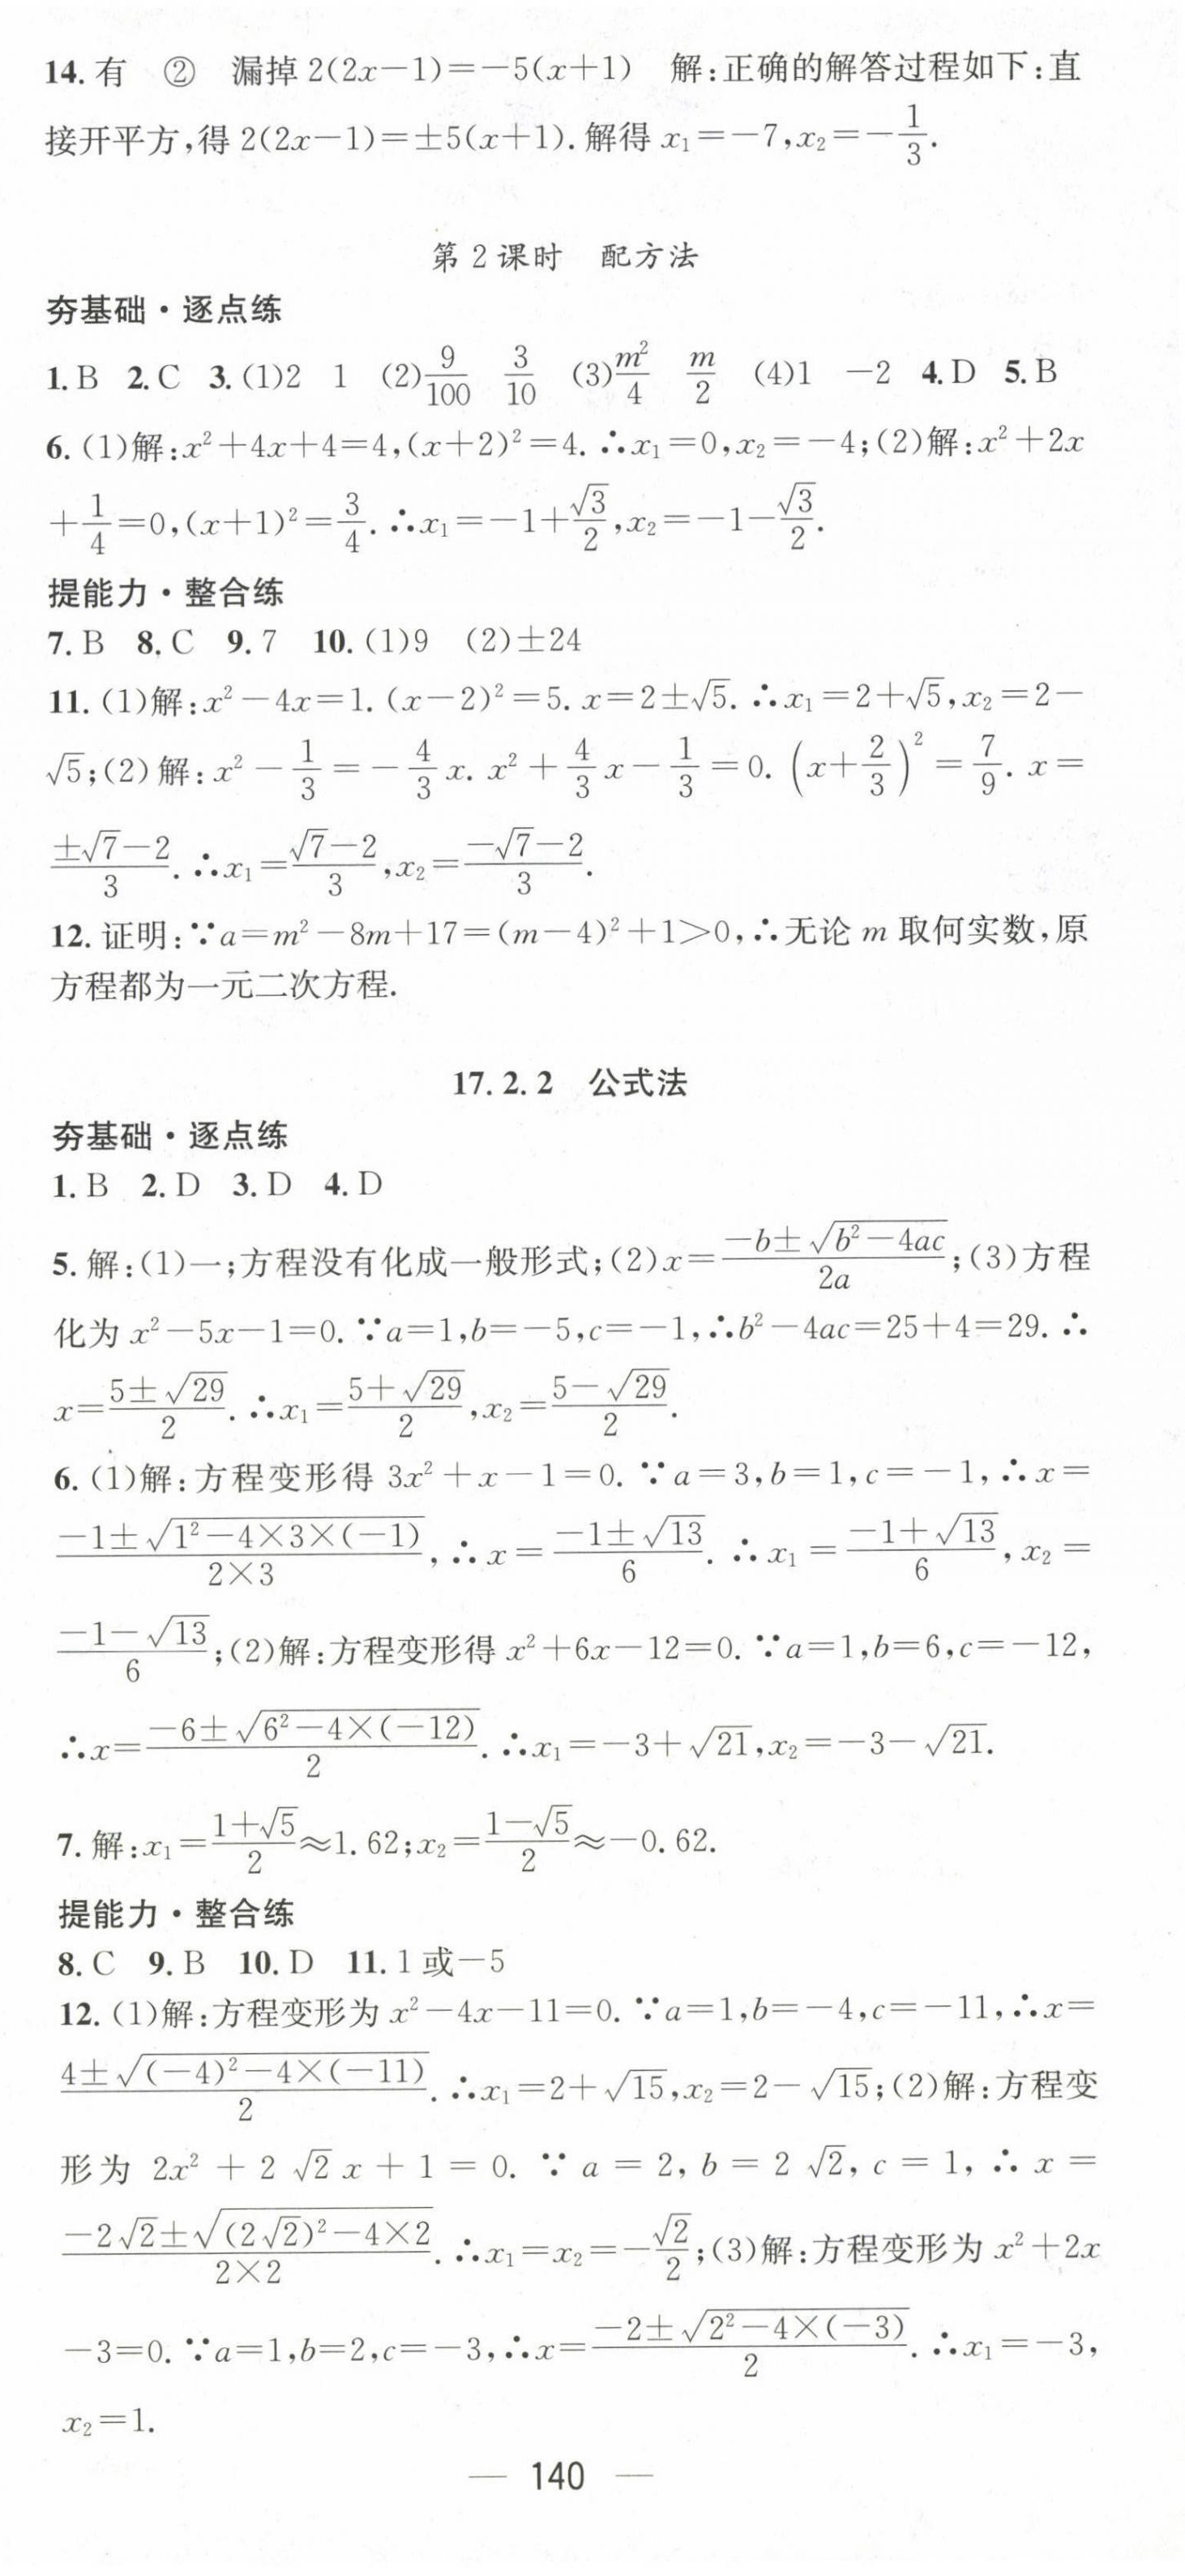 14. 有 ② 漏掉 2(2x−1)=−5(x+1) 解:正确的解答过程如下:直
接开平方,得 2(2x−1)=±5(x+1). 解得 x₁=−7,x₂=−1/3.
第 2 课时 配方法
夯基础·逐点练
1. B 2. C 3. (1)2 1 (2)9/100 3/10 (3)m²/4 m/2 (4)1 −2 4. D 5. B
6. (1)解:x²+4x+4=4,(x+2)²=4. ∴x₁=0,x₂=−4;(2)解:x²+2x
+1/4=0,(x+1)²=3/4. ∴x₁=−1+√3/2,x₂=−1−√3/2.
提能力·整合练
7. B 8. C 9. 7 10. (1)9 (2)±24
11. (1)解:x²−4x=1. (x−2)²=5. x=2±√5. ∴x₁=2+√5,x₂=2−
√5;(2)解:x²−1/3=−4/3 x. x²+4/3 x−1/3=0. (x+2/3)²=7/9. x=
(±√7−2)/3. ∴x₁=(√7−2)/3,x₂=(−√7−2)/3.
12. 证明:∵a=m²−8m+17=(m−4)²+1>0,∴无论 m 取何实数,原
方程都为一元二次方程.
17. 2. 2 公式法
夯基础·逐点练
1. B 2. D 3. D 4. D
5. 解:(1)一;方程没有化成一般形式;(2)x=(−b±√(b²−4ac))/2a;(3)方程
化为 x²−5x−1=0. ∵a=1,b=−5,c=−1,∴b²−4ac=25+4=29. ∴
x=(5±√29)/2. ∴x₁=(5+√29)/2,x₂=(5−√29)/2.
6. (1)解:方程变形得 3x²+x−1=0. ∵a=3,b=1,c=−1,∴x=
(−1±√(1²−4×3×(−1)))/(2×3),∴x=(−1±√13)/6. ∴x₁=(−1+√13)/6,x₂=
(−1−√13)/6;(2)解:方程变形得 x²+6x−12=0. ∵a=1,b=6,c=−12,
∴x=(−6±√(6²−4×(−12)))/2. ∴x₁=−3+√21,x₂=−3−√21.
7. 解:x₁=(1+√5)/2≈1. 62;x₂=(1−√5)/2≈−0. 62.
提能力·整合练
8. C 9. B 10. D 11. 1 或−5
12. (1)解:方程变形为 x²−4x−11=0. ∵a=1,b=−4,c=−11,∴x=
(4±√((−4)²−4×(−11)))/2. ∴x₁=2+√15,x₂=2−√15;(2)解:方程变
形为 2x²+2√2x+1=0. ∵a=2,b=2√2,c=1,∴x=
(−2√2±√((2√2)²−4×2))/(2×2). ∴x₁=x₂=−√2/2;(3)解:方程变形为 x²+2x
−3=0. ∵a=1,b=2,c=−3,∴x=(−2±√(2²−4×(−3)))/2. ∴x₁=−3,
x₂=1.
— 140 —